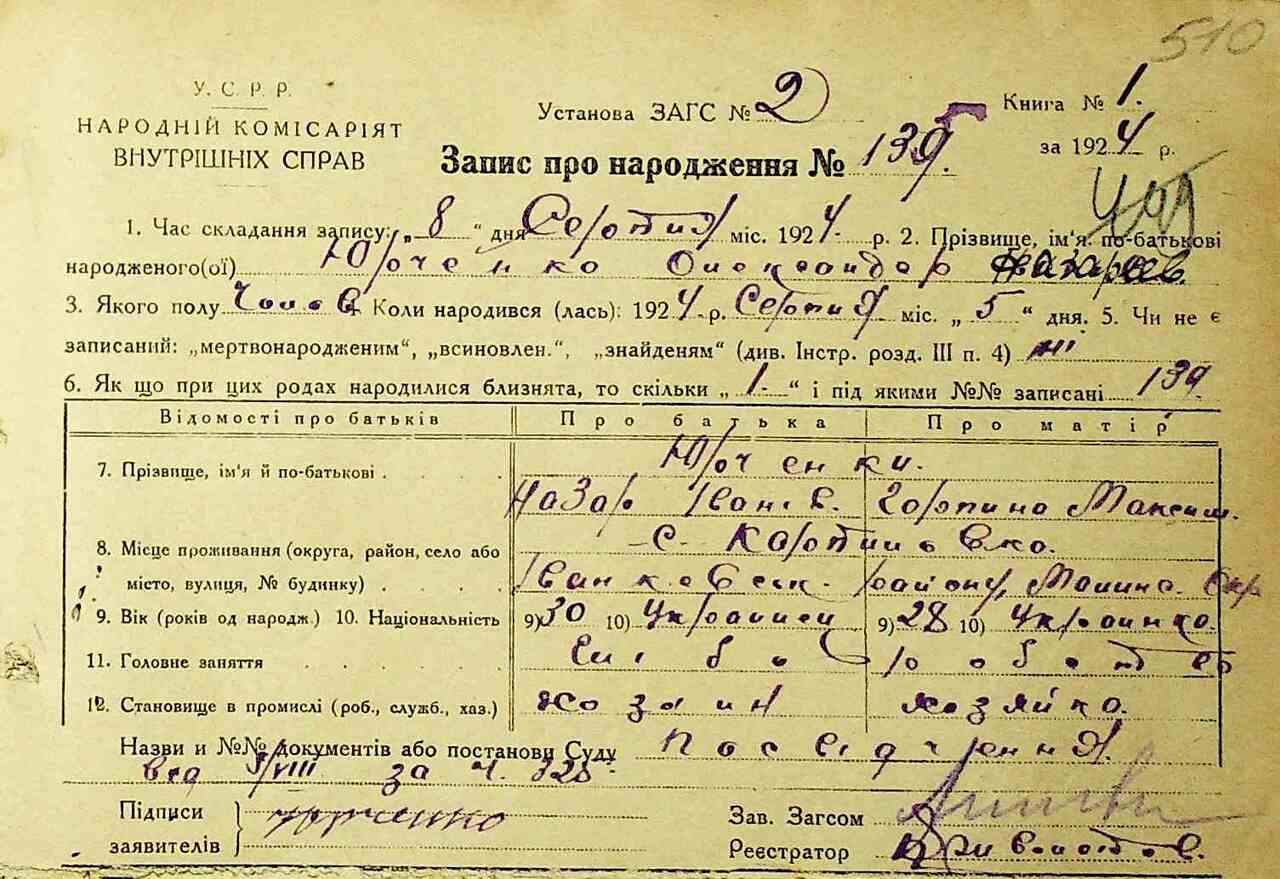 510
У. С. Р. Р.
НАРОДНІЙ КОМІСАРІЯТ
ВНУТРІШНІХ СПРАВ
Установа ЗАГС № 2
Книга № 1.
за 1924 р.
Запис про народження № 139.
1. Час складання запису: „8“ дня Серпня міс. 1924 р. 2. Прізвище, ім'я, по-батькові
народженого(ої) Юрченко Олександер Назаров.
3. Якого полу Чолов Коли народився (лась): 1924 р. Серпня міс. „5“ дня. 5. Чи не є
записаний: „мертвонародженим“, „всиновлен.“, „знайденям“ (див. Інстр. розд. III п. 4) ні
6. Як що при цих родах народилися близнята, то скільки „1-“ і під якими №№ записані 139.
Відомості про батьків Про батька Про матір
7. Прізвище, ім'я й по-батькові . Юрченки.
Назар Іванів. Горпина Максим.
8. Місце проживання (округа, район, село або с. Картиловка.
місто, вулиця, № будинку) . . . . Іванковск. району, Малинс. Окр
9. Вік (років од народж.) 10. Національність 9) 30 10) Українец 9) 28 10) Українка.
11. Головне заняття . . . . . Сільбо робство
12. Становище в промислі (роб., служб., хаз.) хозаін хозяйка.
Назви и №№ документів або постанови Суду Посвідчення
від 5/VIII за ч. 328
Підписи
заявителів
Юрченко
Зав. Загсом
Реєстратор